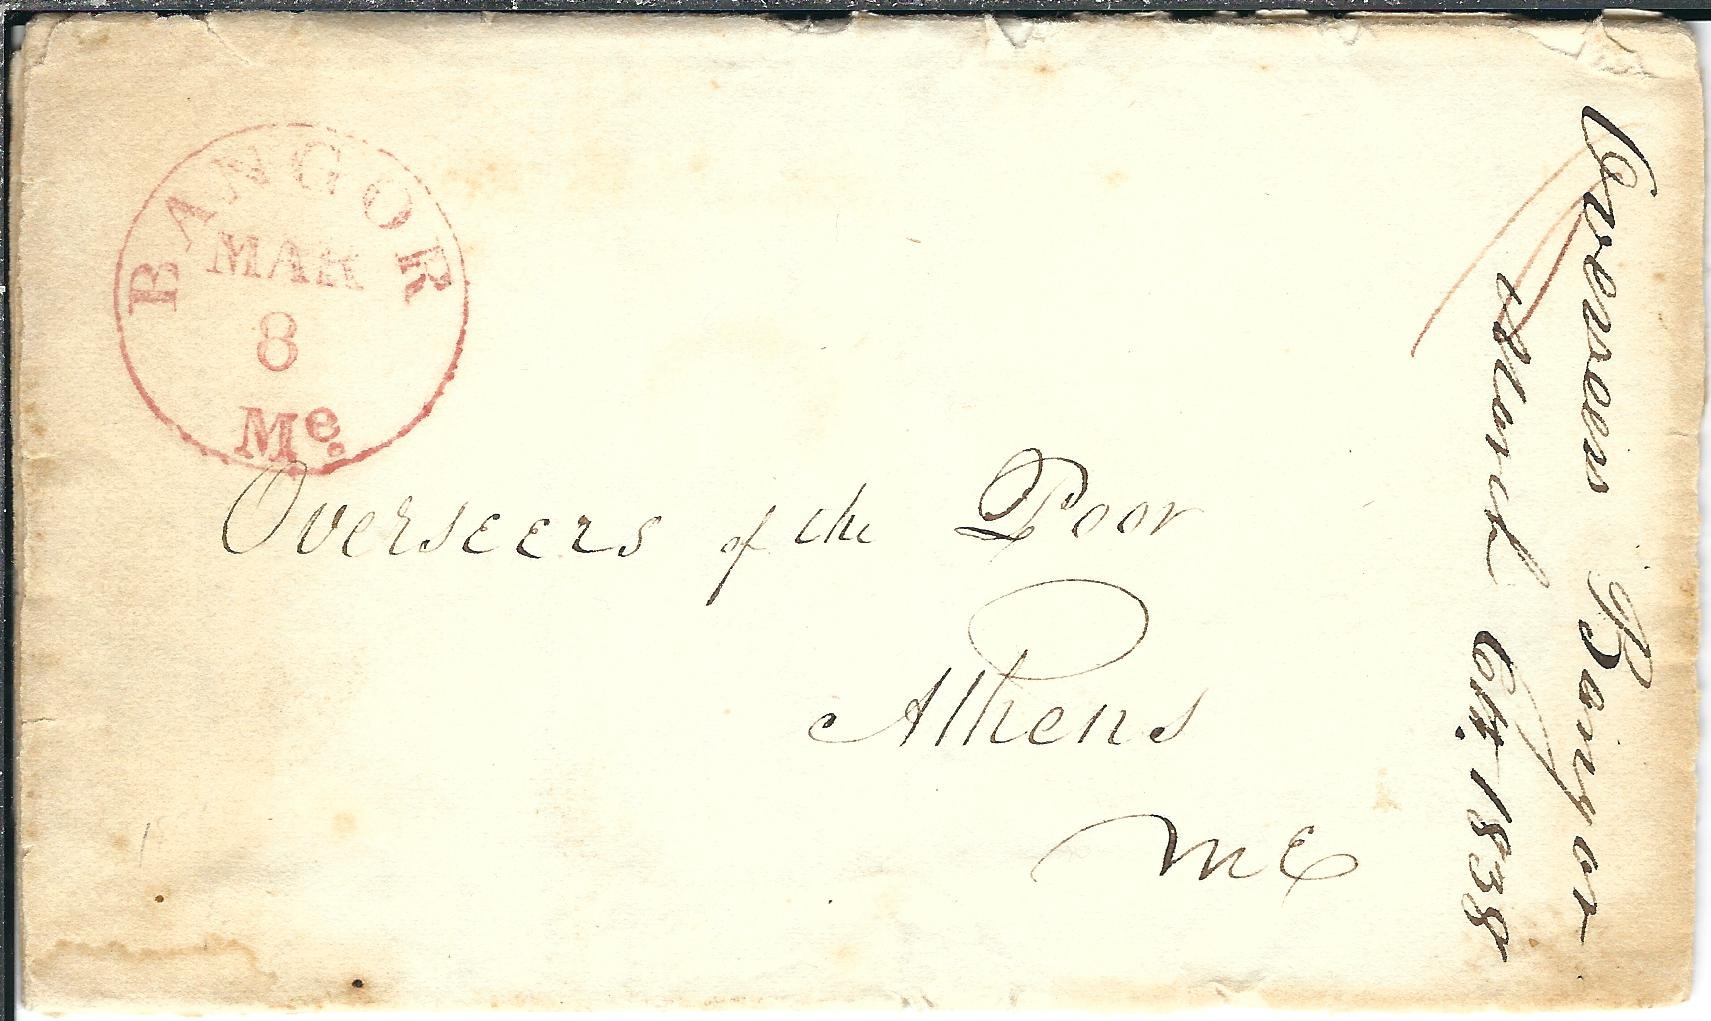 BANGOR
MAR
8
Me.
Overseers of the Poor
Athens
Me
Overseers Bangor
March 6th, 1838